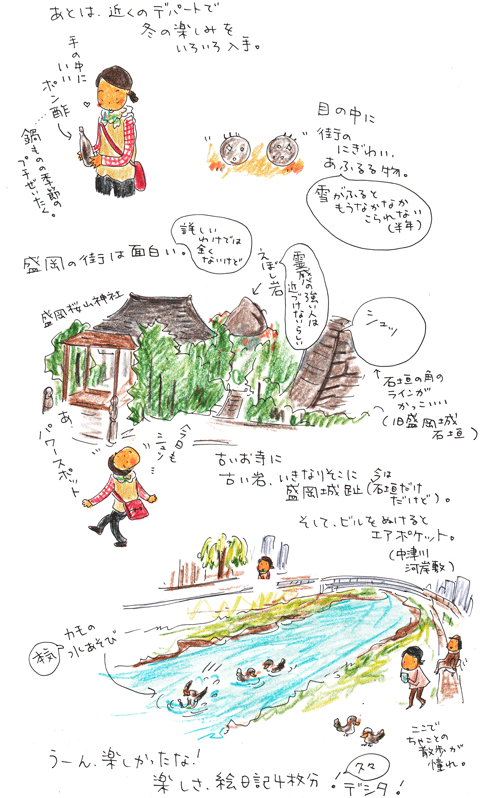 あとは、近くのデパートで
冬の楽しみを
いろいろ入手。
手の中に
ポン酢
鍋ものの季節の
プチぜいたく。
目の中に
街の
にぎわい、
あふるる物。
雪がふると
もうなかなか
こられない
(半年)
盛岡の街は面白い。
詳しい
わけでは
全く
ないけど
えぼし岩
霊感の強い人は
近づけないらしい
シュッ
盛岡桜山神社
石垣の角の
ラインが
かっこいい
(旧盛岡城
石垣)
あ、
パワースポット
今日も
古いお寺に
古い岩、いきなりそこに
盛岡城趾
今は
(石垣だけ
だけど)。
そして、ビルをぬけると
エアポケット。
(中津川
河岸敷)
カモの
水あそび
ここで
ちゃことの
散歩が
憧れ。
うーん、楽しかったな!
楽しさ、絵日記4枚分!
久々
デシタ!